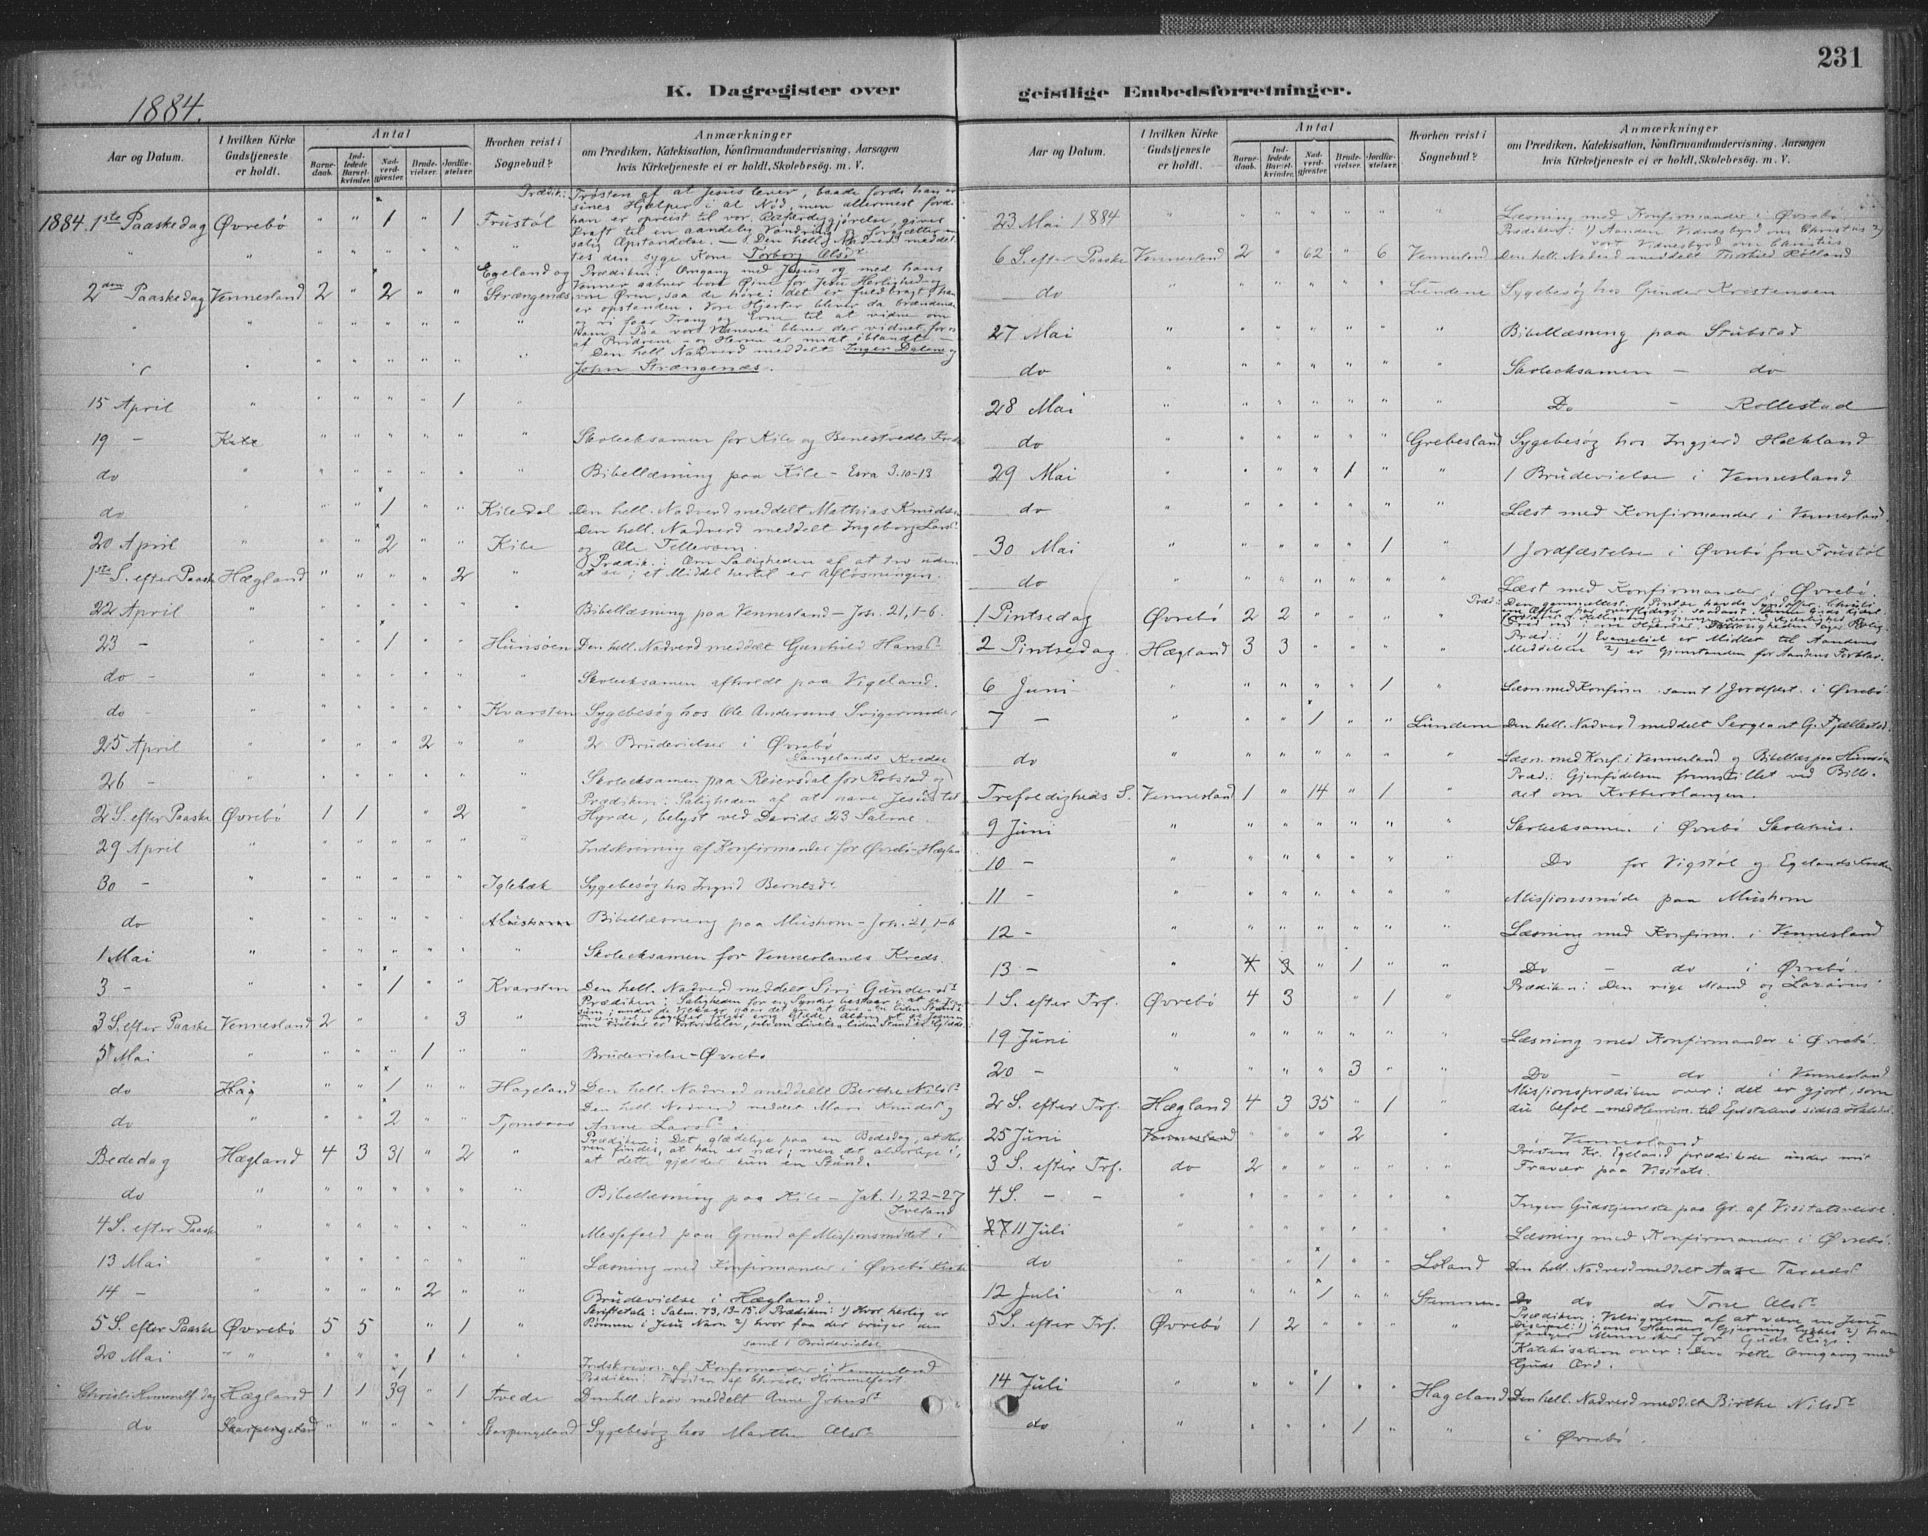 231
K. Dagregister over
geistlige Embedsforretninger.
1884.
Aar og Datum.
I hvilken Kirke Gudstjeneste er holdt.
Antal
Barnedaab.
Indledede Barselkvinder.
Nadverdgjester.
Brudevielser.
Jordfæstelser.
Hvorhen reist i Sognebud?
Anmærkninger
om Prædiken, Katekisation, Konfirmandundervisning, Aarsagen
hvis Kirketjeneste ei er holdt, Skolebesøg. m. V.
1884. 1ste Paaskedag Øvrebö " " 1 " 1 Frustöl Prædik: Trøsten af at Jesus lever, baade fordi han er
sines Hjælper i al Nød, men allermest fordi
han er opreist til vor Retfærdiggjørelse, giver
Kraft til en aandelig Vandring og forsætter
salig Opstandelse. – Den hell. Nadverd meddel
tes den syge Kone Torborg Olsdr
2den Paaskedag Vennesland 2 " 2 " " Egeland og Strængenæs Prædiken: Omgang med Jesus og med hans
Venner aabner vore Øine for Jesu Herlighed og
vore Øren, saa de höre: det er fuldbragt, han
er opstanden. Vore Hjerter bliver da brændende
og vi faar Trang og Evne til at vidne om
– Den hell. Nadverd meddelt Inger Dalen og
John Strængenæs.
15 April " " " " " 1 "
19 – Kile " " " " " " Skoleeksamen for Kile og Benestvedts Kreds
do " " " " " " " Bibellæsning paa Kile – Esra 3.10-13
do " " " 1 " " Kiledal Den hell. Nadverd meddelt Mathias Knuds
20 April " " " 2 " " Kile Den hell. Nadverd meddelt Ingeborg Larsdr
og Ole
1ste S. efter Paaske Hægland " " " " 2 " Prædik.: Om Saligheden af at tro uden
at se; et Middel hertil er Afløsningen.
22 April " " " " " " " Bibellæsning paa Vennesland – Joh. 21, 1-6.
23 – " " " 1 " " Hunsöen Den hell. Nadverd meddelt Gunhild Hansdr
do – " " " " " " " Skoleeksamen afholdt paa Vigeland.
do – " " " " " " Kvarsten Sygebesøg hos Ole Andersens Svigermoder
25 April " " " " 2 " " 2 Brudevielser i Øvrebö
26 – " " " " " " " Skoleeksamen paa Reiersdal for Robstad og
Langelands Kredse
2 S. efter Paaske Øvrebö 1 1 " " 2 " Prædiken: Saligheden af at have Jesus til
Hyrde, belyst ved Davids 23 Salme.
29 April " " " " " " " Indskrivning af Konfirmander for Øvrebö-Hægland
30 – " " " " " " Iglebæk Sygebesøg hos Ingrid Berntsdr
do " " " " " " Mushom Bibellæsning paa Mushom – Joh. 21, 1-6
1 Mai " " " " " " " Skoleeksamen for Venneslands Kreds.
3 – " " " 1 " " Kvarsten Den hell. Nadverd meddelt Siri Gundersdr
3 S. efter Paaske Vennesland 2 " " " 3 " Prædiken: Saligheden for en Synder bestaar i at se Jesum
5 Mai " " " " 1 " " Brudevielse – Øvrebö
do Häg " " 1 " " Hageland Den hell. Nadverd meddelt Berthe Nilsdr
do " " " 2 " " Tjomsaas Den hell. Nadverd meddelt Mari Knudsdr og
Anne Larsdr.
Bededag Hægland 4 3 31 " 2 " Prædiken: Det glædelige paa en Bededag, at Her-
ren findes, at han er nær; men det alvorlige i,
at dette gjælder kun en Stund.
do " " " " " " " Bibellæsning paa Kile – Jak. 1, 22-27
4 S. efter Paaske " " " " " " " Messefald paa Grund af Missionsmödet i Iveland
13 Mai " " " " " " " Læsning med Konfirmander i Øvrebö Kirke
14 – " " " " 2 " " Brudevielse i Hægland.
5 S. efter Paaske Øvrebö 5 5 " " 1 " Skriftetale: Salm. 73, 13-15. Prædiken: 1) Hvor herlig er
Bønnen i Jesu Navn 2) hvor faa der bruger den
20 Mai " " " " 1 " " Indskrivn. af Konfirmander i Vennesland
samt 1 Brudevielse
Christi Himmelf. dag Hægland 1 1 39 " 1 Tvede Prædiken: Frugten af Christi Himmelfart
Den hell. Nadv meddelt Anne Johnsdr
do Skarpengeland " " " " " Skarpengeland Sygebesøg hos Marthe Olsdr
Aar og Datum.
I hvilken Kirke Gudstjeneste er holdt.
Antal
Barnedaab.
Indledede Barselkvinder.
Nadverdgjester.
Brudevielser.
Jordfæstelser.
Hvorhen reist i Sognebud?
Anmærkninger
om Prædiken, Katekisation, Konfirmandundervisning, Aarsagen
hvis Kirketjeneste ei er holdt, Skolebesøg. m. V.
23 Mai 1884 " " " " " " " Læsning med Konfirmander i Øvrebö
6 S. efter Paaske Vennesland 2 " 62 " 6 Vennesland Prædiken: 1) Aanden Vidnesbyrd om Christus 2)
vort Vidnesbyrd om Christus
Den hell. Nadverd meddelt Rölland
do " " " " " " Lundene Sygebesøg hos Gunder Kristensen
27 Mai " " " " " " " Bibellæsning paa Stubstad
do " " " " " " " Skoleeksamen – do
28 Mai " " " " " " " Do – Rollestad
do " " " " " " Grebesland Sygebesøg hos Ingjerd Hækland
29 Mai " " " " 1 " " 1 Brudevielse i Vennesland
do " " " " " " " Læst med Konfirmander i Vennesland.
30 Mai " " " " " 1 " 1 Jordfæstelse i Øvrebö fra Frustöl
do " " " " " " " Læst med Konfirmander i Øvrebö.
1 Pintsedag Øvrebö 2 2 " " " " Præd:
2 Pintsedag Hægland 3 3 " " " " Præd.: 1) Evangeliet er Midlet til Aandens
Meddelelse 2) er Gjenstanden for Aandens Forklar.
6 Juni " " " " " 1 " Læsn. med Konfirm. samt 1 Jordfæst. i Øvrebö
7 – " " " 1 " " Lundene Den hell. Nadverd meddelt Sergeant G. Fjellestad
do " " " " " " Læsn. med Konf. i Vennesland og Bibellæs paa Hunsöen
Trefoldigheds S. Vennesland 1 " 14 " 1 " Præd.: Gjenfödelsen fremstillet ved Bille-
det om Kobberslangen.
9 Juni " " " " " " " Skoleeksamen i Øvrebö Skolehus.
10 – " " " " " " " Do for Vigstöl og Egelands Kredse
11 – " " " " " " " Missionsmöde paa Mushom
12 – " " " " " " " Læsning med Konfirm. i Vennesland
13 – " 4 3 " 1 " " Do – do i Øvrebö.
1 S. efter Trf. Øvrebö 4 3 " " 1 " Prædiken: Den rige Mand og Lazarus
19 Juni " " " " " " " Læsning med Konfirmander i Øvrebö.
20 – " " " " 3 " " Do – do i Vennesland
2 S. efter Trf. Hægland 4 3 35 " 1 " Missionsprædiken over: det er gjort, som
du befol – med Henvisn. til
25 Juni Vennesland " " " 2 " " i Vennesland
3 S. efter Trf. do 2 " " " " " Presten Kr. Egeland prædikede under mit
Fravær paa Visitats.
4 S. – – " " " " " " " Ingen Gudstjeneste paa Gr. af Visitatsreise.
27 11 Juli " " " " " " " Læsning med Konfirmander i Øvrebö.
do " " " 1 " " Löland Den hell. Nadverd meddelt Aase Tarvedsdr
12 Juli " " " 1 " " Stemmen Do do do Tone Olsdr
5 S. efter Trf. Øvrebö 1 2 " " " " Prædiken: Velsignelsen af at være en Jesu
Discipel: 1) hans Hænders Gjerning lykkes 2) han
fanger Mennesker for Guds Rige.
Katekisation over: Den rette Omgang med
Guds Ord.
14 Juli " " " 1 " " Hageland Den hell. Nadverd meddelt Birthe Nilsdr
do " " " " 1 " " i Øvrebö.